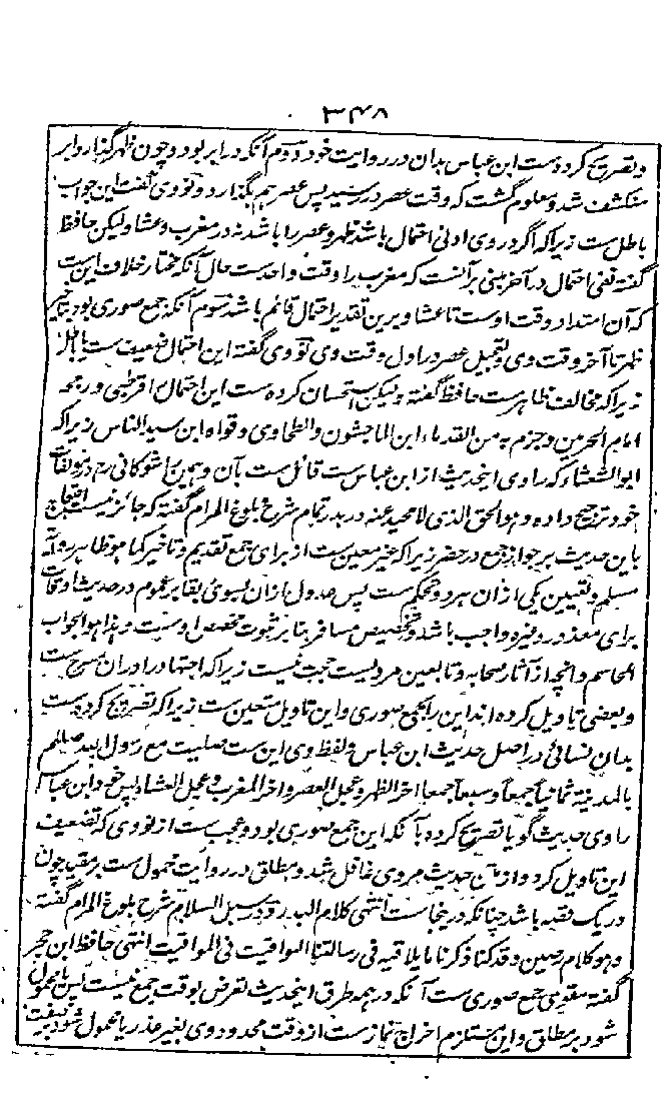 ۳۴۸
و تصریح کرده ست ابن عباس بدان در روایت خود دوم آنکه در ابر بود و چون ظهر گذارد ابر
منکشف شد و معلوم گشت که وقت عصر در رسید پس عصر هم بگذارد و نووی گفت این جواب
باطل ست زیرا که اگر در وی ادنی احتمال باشد ظهر و عصر را باشد نه در مغرب و عشا و لیکن حافظ
گفته نفی احتمال در آخر مبنی بر آنست که مغرب را وقت واحد ست حال آنکه مختار خلاف این ست
که آن امتداد وقت اوست تا عشا و برین تقدیر احتمال قائم باشد سوم آنکه جمع صوری بود بتاخیر
ظهر تا آخر وقت وی و تعجیل عصر در اول وقت وی نووی گفته این احتمال ضعیف ست یا باطل
زیرا که مخالف ظاهر ست حافظ گفته و لیکن استحسان کرده ست این احتمال را قرطبی و رجحه
امام الحرمین و جزم به من القدماء ابن الماجشون والطحاوی و قواه ابن سید الناس زیرا که
ابو الشعثاء که راوی اینحدیث از ابن عباس ست قائل ست بآن و همین را شوکانی رح در مولفات
خود ترجیح داده و هو الحق الذی لا محید عنه در بدر تمام شرح بلوغ المرام گفته که جائز نیست احتجاج
باین حدیث بر جواز جمع در حضر زیرا که غیر معین ست از برای جمع تقدیم و تاخیر کما هو ظاهر روایة
مسلم و تعیین یکی از ان هر دو تحکم ست پس عدول از ان بسوی بقا بر عموم در حدیث اوقات
برای معذور و غیره واجب باشد و تخصیص مسافر بنا بر ثبوت مخصص اوست و هذا هو الجواب
الحاسم و انچه از آثار صحابه و تابعین مرویست حجت نیست زیرا که اجتهاد را دران مسرح ست
و بعضی تاویل کرده اند این را بجمع صوری و این تاویل متعین ست زیرا که تصریح کرده ست
بدان نسائی در اصل حدیث ابن عباس و لفظ وی این ست صلیت مع رسول الله صللم
بالمدینة ثمانیا جمعا و سبعا جمعا اخر الظهر و عجل العصر و اخر المغرب و عجل العشاء پس خود ابن عباس
راوی حدیث گویا تصریح کرده بآنکه این جمع صوری بود و عجب ست از نووی که تضعیف
این تاویل کرد و از متن حدیث مروی غافل شد و مطلق در روایت محمول ست بر مقید چون
در یک قصه باشد چنانکه در ینجاست انتهی کلام البدر و در سبل السلام شرح بلوغ المرام گفته
و هو کلام رصین و قد کنا ذکرنا ما یلاقیه فی رسالتنا الیواقیت فی المواقیت انتهی حافظ ابن حجر
گفته مقوی جمع صوری ست آنکه در همه طرق اینحدیث تعرض بوقت جمع نیست پس یا محمول
شود بر مطلق و این مستلزم اخراج نماز ست از وقت محدود وی بغیر عذر یا محمول شود بر